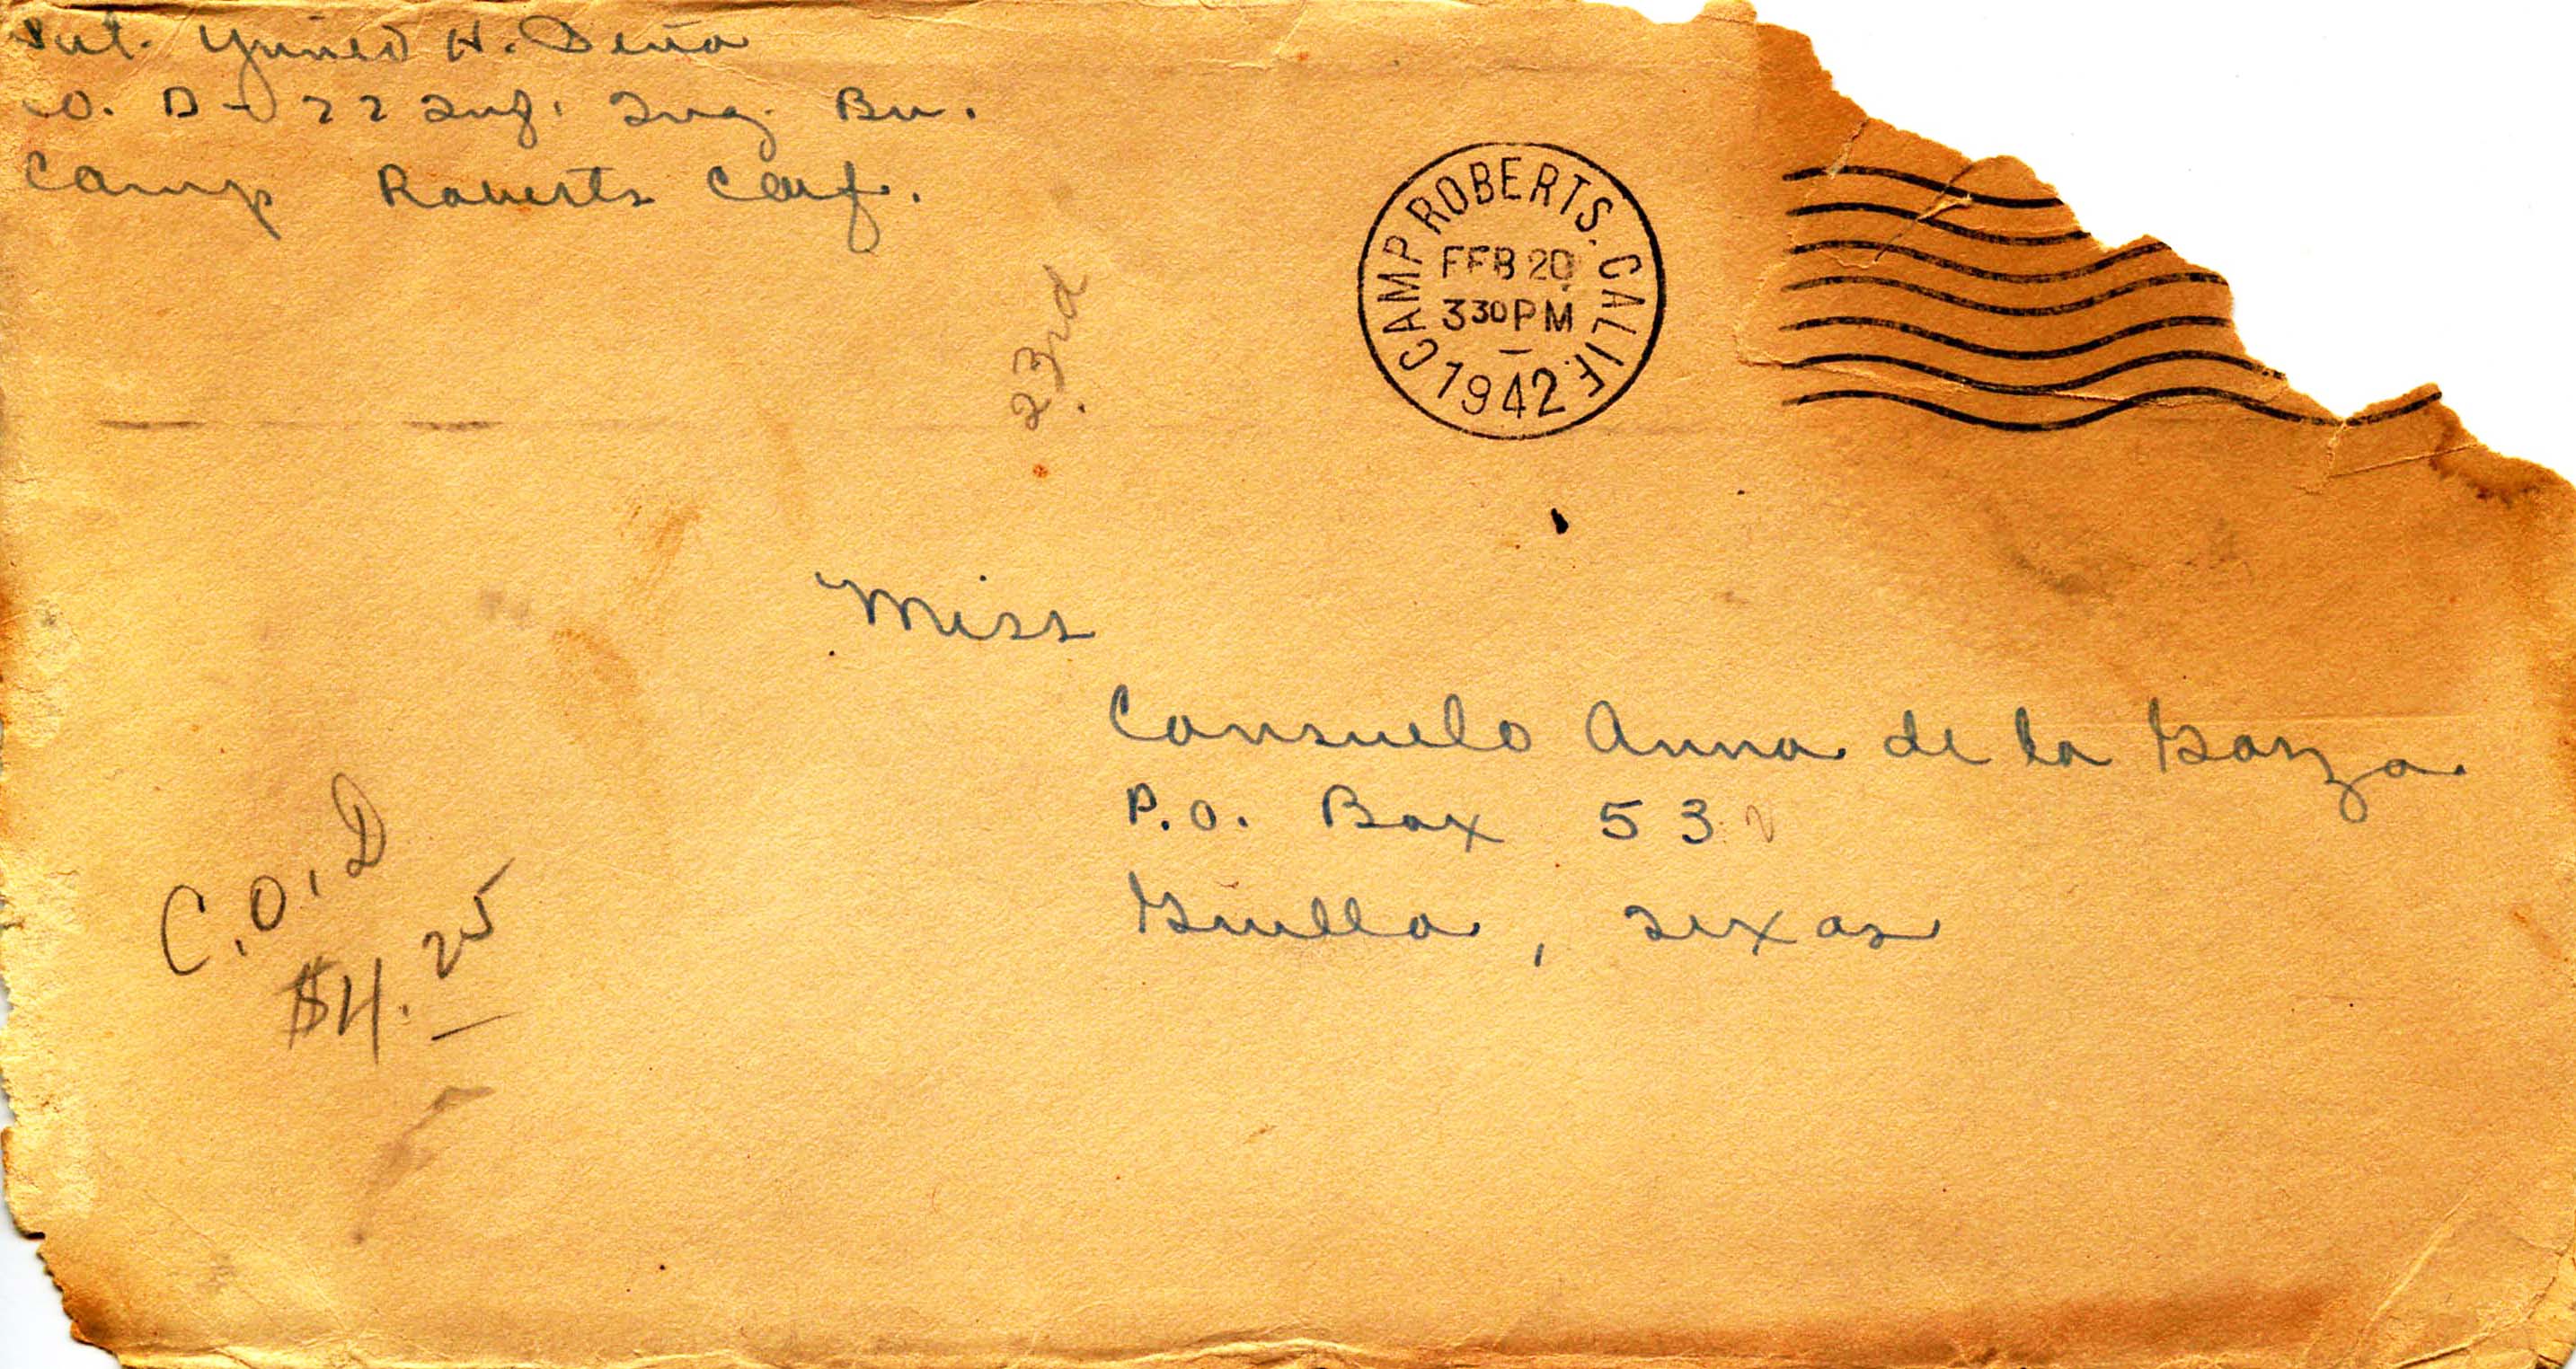 Pvt. H. Peña
Co. D - 22 Inf. Trg. Bn.
Camp Roberts Calif.
CAMP ROBERTS. CALIF.
FEB 20
3 30 PM
1942
23rd
Miss
Consuelo Anna de la Garza
P.O. Box 53
Grulla, Texas
C.O.D
$4.25